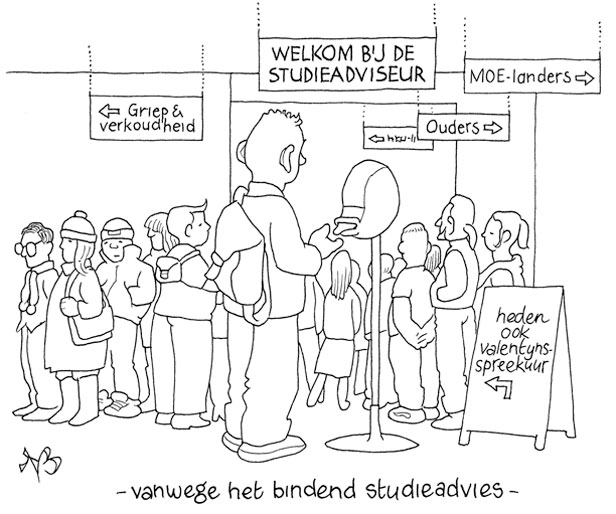 WELKOM BIJ DE
STUDIEADVISEUR
MOE-landers →
← Griep &
verkoudheid
Ouders →
←
heden
ook
valentijns-
spreekuur
- vanwege het bindend studieadvies -